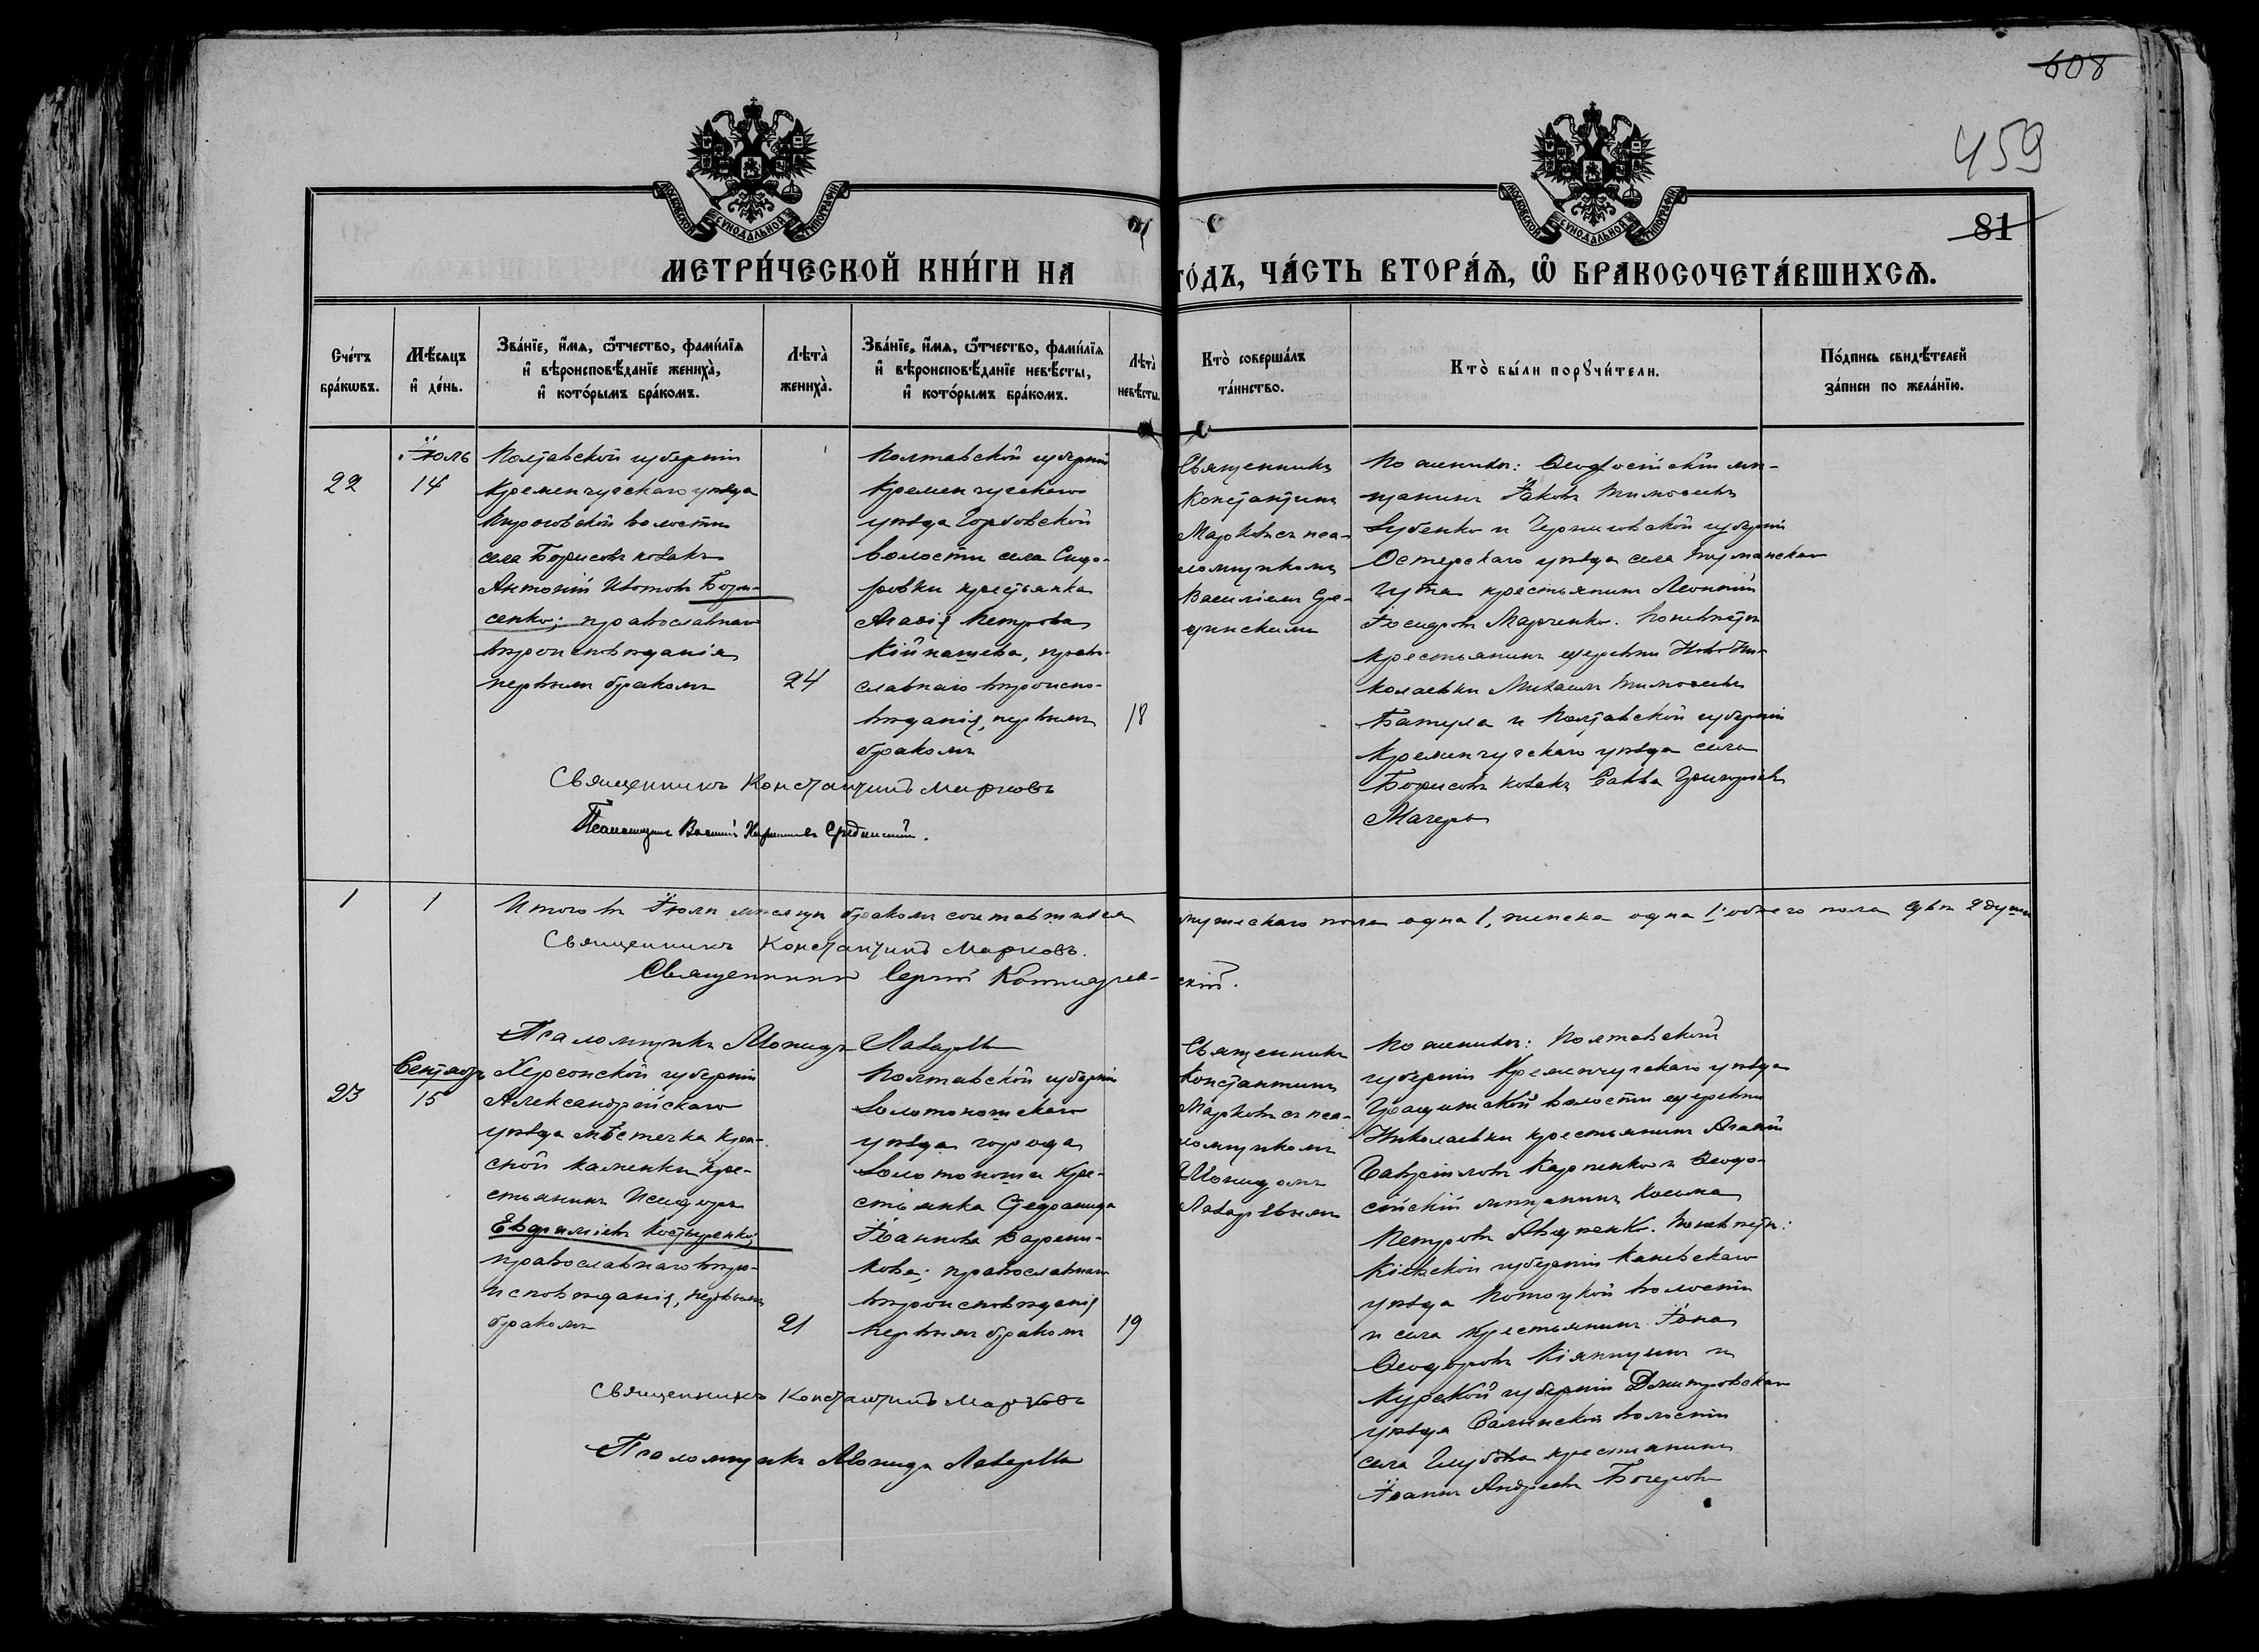 608
459
81
МОСКОВСКОЙ СУНОДАЛЬНОЙ ТИПОГРАФІИ
МОСКОВСКОЙ СУНОДАЛЬНОЙ ТИПОГРАФІИ
МЕТРИ́ЧЕСКОЙ КНИ́ГИ НА
ГО́ДЪ, ЧА́СТЬ ВТОРА́Ѧ, Ѽ БРАКОСОЧЕТА́ВШИХСѦ.
Сче́тъ бра́кѡвъ.
Мѣ́сяцъ и҆ де́нь.
Зва́нїе, и҆́мѧ, ѻ҆́тчество, фами́лїѧ
и҆ вѣроисповѣ́данїе жениха̀,
и҆ кото́рымъ бра́комъ.
Лѣта̀ жениха̀.
Зва́нїе, и҆́мѧ, ѻ҆́тчество, фами́лїѧ
и҆ вѣроисповѣ́данїе невѣ́сты,
и҆ кото́рымъ бра́комъ.
Лѣта̀ невѣ́сты.
Кто̀ соверша́лъ
та́инство.
Кто̀ бы́ли порꙋчи́тели.
По́дпись свидѣ́телей
за́писи по жела́нїю.
22
Іюль
14
Полтавской губерніи
Кременчугскаго уѣзда
волости
села Борисовъ козакъ
Антоній Изотовъ Бори-
сенко; православнаго
вѣроисповѣданія
первымъ бракомъ
24
Полтавской губерніи
Кременчугскаго
уѣзда Горбовской
волости села Сидо-
ровки крестьянка
Агаѳія Петрова
право-
славнаго вѣроиспо-
вѣданія, первымъ
бракомъ
18
Священникъ
Константинъ
Марковъ съ пса-
ломщикомъ
Василіемъ Сре-
динскимъ
По женихѣ: Ѳеодосійскій мѣ-
щанинъ Іаковъ Тимоѳеевъ
Зубенко и Черниговской губерніи
Остерскаго уѣзда села
крестьянинъ Леонтій
Марченко. По невѣстѣ
крестьянинъ деревни Ново-Ни-
колаевки Михаилъ Тимоѳеевъ
и Полтавской губерніи
Кременчугскаго уѣзда села
Борисовъ козакъ Савва Григорьевъ
Магеръ
Священникъ Константинъ Марковъ
Псаломщикъ Василій Срединскій.
1
1
Итого въ Іюлѣ мѣсяцѣ бракомъ сочетавшихся
мужескаго пола одна 1, женска одна 1 обоего пола двѣ 2 души
Священникъ Константинъ Марковъ.
Священникъ Сергій
скій.
Псаломщикъ Леонидъ Лазаревъ
23
Сентябрь
15
Херсонской губерніи
Александрійскаго
уѣзда мѣстечка Кра-
сной Каменки кре-
стьянинъ Исидоръ
Евфиміевъ Костыренко;
православнаго вѣро-
исповѣданія, первымъ
бракомъ
21
Полтавской губерніи
Золотоношскаго
уѣзда города
Золотоноша кре-
стьянка
Іоаннова Варени-
кова; православнаго
вѣроисповѣданія
первымъ бракомъ
19
Священникъ
Константинъ
Марковъ съ пса-
ломщикомъ
Леонидомъ
Лазаревымъ
По женихѣ: Полтавской
губерніи Кременчугскаго уѣзда
волости деревни
Николаевки крестьянинъ
Гавріиловъ Карпенко и Ѳеодо-
сійскій мѣщанинъ Косма
Петровъ По невѣстѣ:
Кіевской губерніи Каневскаго
уѣзда Потоцкой волости
и села крестьянинъ Іона
Ѳеодоровъ и
Курской губерніи Дмитровскаго
уѣзда волости
села крестьянинъ
Іоаннъ Андреевъ
Священникъ Константинъ Марковъ
Псаломщикъ Леонидъ Лазаревъ